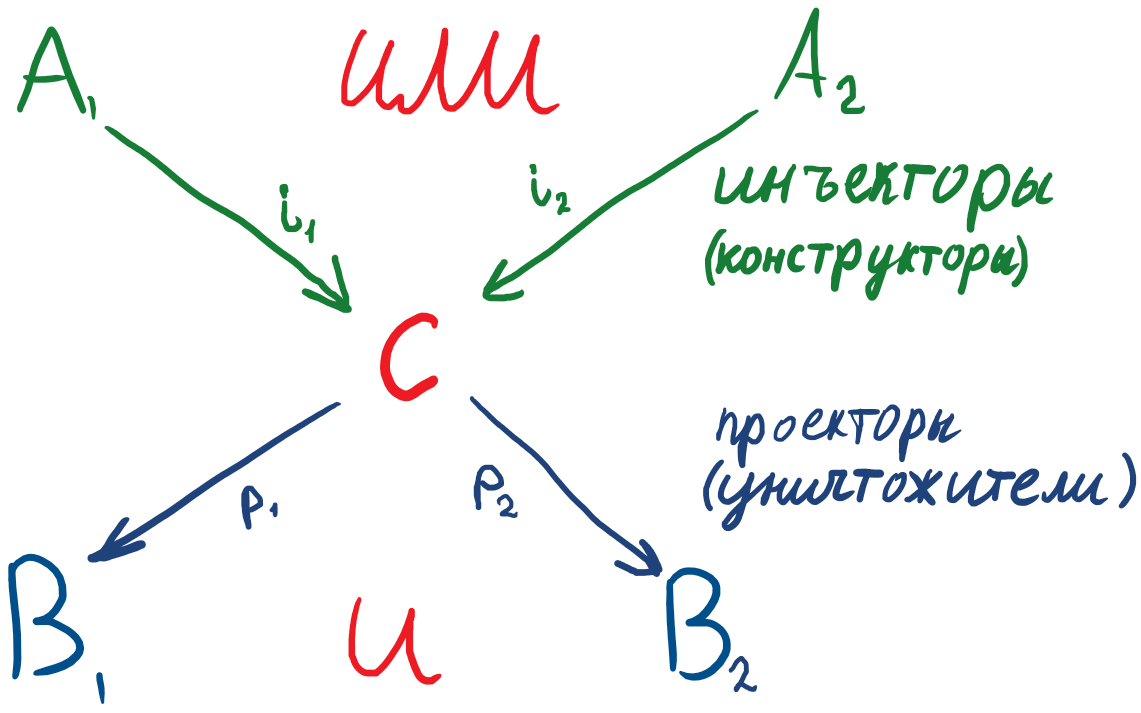 A₁ или A₂
i₁ i₂ инъекторы
(конструкторы)
C
проекторы
p₁ p₂ (уничтожители)
B₁ и B₂